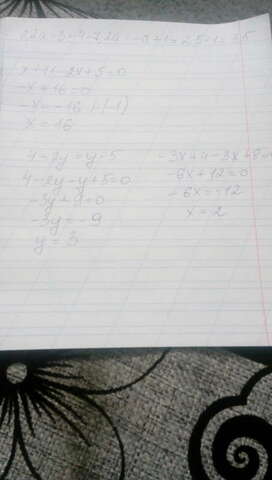 x+11-2x+5=0
-x+16=0
-x=-16 |:(-1)
x=16
4-2y=y-5
4-2y-y+5=0
-3y+9=0
-3y=-9
y=3
-3x+4-3x+8=
-6x+12=0
-6x=-12
x=2